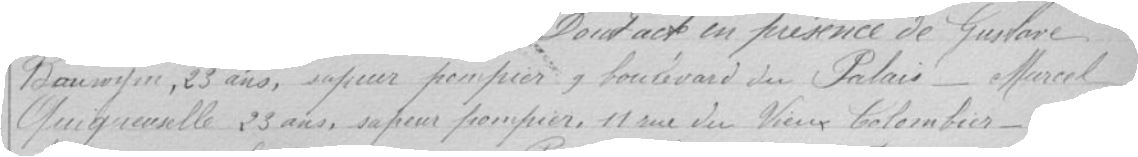 Dont act en présence de Gustave
Bauwym, 23 ans, sapeur pompier 9 boulevard du Palais — Marcel
Quiqueuselle 23 ans, sapeur pompier, 11 rue du Vieux Colombier —